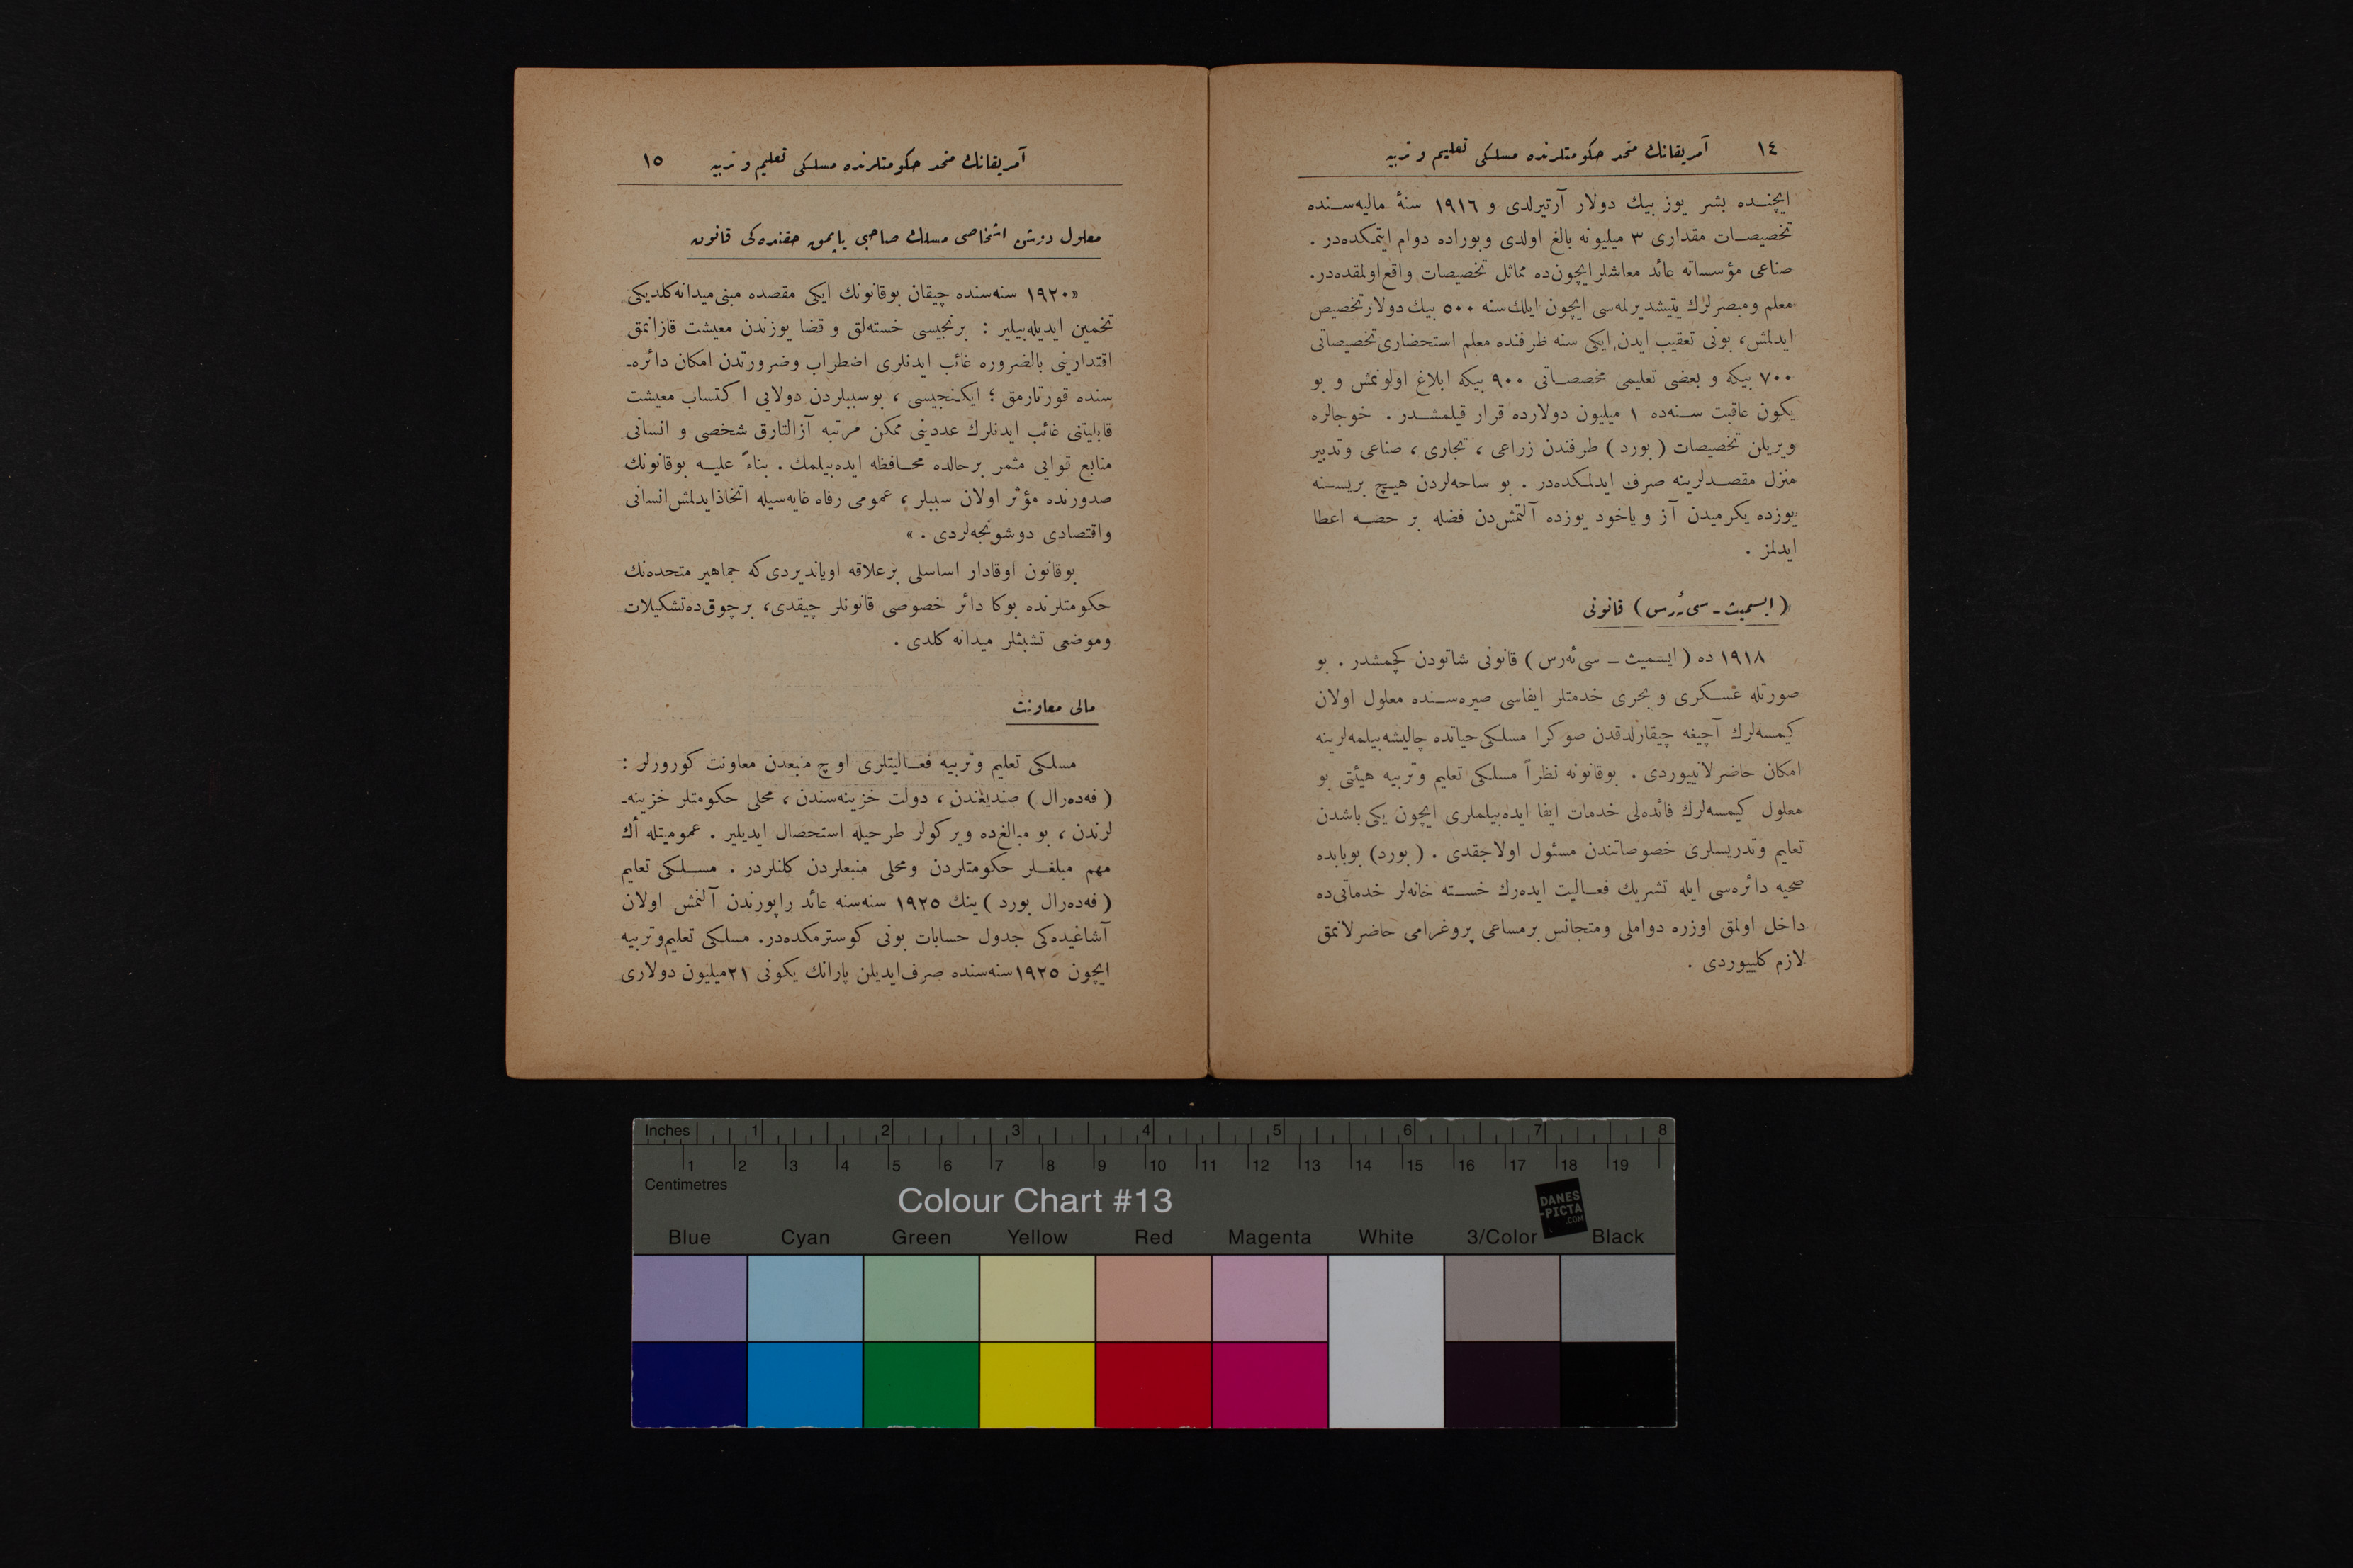 ١٤ آمريقانك متحد حكومتلرنده مسلكى تعليم و تربيه
ايچنــده بشر يوز بيك دولار آرتيرلدى و ١٩١٦ سنۀ ماليه‌ســنده
تخصيصــات مقدارى ٣ ميليونه بالغ اولدى وبوراده دوام ايتمكده‌در .
صناعى مؤسساته عائد معاشلر ايچون‌ده مماثل تخصيصات واقع اولمقده‌در.
معلم ومبصرلرك يتيشديرلمه‌سى ايچون ايلك سنه ٥٠٠ بيك دولار تخصيص
ايدلمش، بونى تعقيب ايدن ايكى سنه ظرفنده معلم استحضارى تخصيصاتى
٧٠٠ بيكه و بعضى تعليمى مخصصــاتى ٩٠٠ بيكه ابلاغ اولونمش و بو
يكون عاقبت ســنه‌ده ١ ميليون دولارده قرار قيلمشــدر . خوجالره
ويريلن تخصيصات ( بورد ) طرفندن زراعى ، تجارى ، صناعى وتدبير
منزل مقصــدلرينه صرف ايدلمكده‌در . بو ساحه‌لردن هيــچ بريســنه
يوزده يكرميدن آز و ياخود يوزده آلتمش‌دن فضله بر حصــه اعطا
ايدلمز .
( ايسميث ـ سى‌ئه‌رس ) قانونى
١٩١٨ ده ( ايسميث ــ سى‌ئه‌رس ) قانونى شاتودن كچمشدر . بو
صورتله عســكرى و بحرى خدمتلر ايفاسى صيره‌ســنده معلول اولان
كيمسه‌لرك آچيغه چيقارلدقدن صوكرا مسلكى حياتده چاليشه‌بيلمه‌لرينه
امكان حاضرلانييوردى . بوقانونه نظراً مسلكى تعليم وتربيه هيئتى بو
معلول كيمسه‌لرك فائده‌لى خدمات ايفا ايده‌بيلملرى ايچون يكى باشدن
تعليم وتدريسلرى خصوصاتندن مسئول اولاجقدى . ( بورد ) بوبابده
صحيه دائره‌سى ايله تشريك فعــاليت ايده‌رك خســته خانه‌لر خدماتى‌ده
داخل اولمق اوزره دواملى ومتجانس برمساعى پروغرامى حاضرلانمق
لازم كلييوردى .
آمريقانك متحد حكومتلرنده مسلكى تعليم و تربيه ١٥
معلول دوشن اشخاصى مسلك صاحبى ياپمق حقنده‌كى قانون
«١٩٢٠ سنه‌سنده چيقان بوقانونك ايكى مقصده مبنى ميدانه كلديكى
تخمين ايديله‌بيلير : برنجيسى خسته‌لق و قضا يوزندن معيشت قازانمق
اقتدارينى بالضروره غائب ايدنلرى اضطراب وضرورتدن امكان دائره‌ـ
سنده قورتارمق ؛ ايكنجيسى ، بوسببلردن دولايى اكتساب معيشت
قابليتنى غائب ايدنلرك عددينى ممكن مرتبه آزالتارق شخصى و انسانى
منابع قوايى مثمر برحالده محــافظه ايده‌بيلمك . بناءً عليــه بوقانونك
صدورنده مؤثر اولان سببلر ، عمومى رفاه غايه‌سيله اتخاذ ايدلمش انسانى
واقتصادى دوشونجه‌لردى . »
بوقانون اوقادار اساسلى برعلاقه اويانديردى كه جماهير متحده‌نك
حكومتلرنده بوكا دائر خصوصى قانونلر چيقدى، برچوق‌ده تشكيلات
وموضعى تشبثلر ميدانه كلدى .
مالى معاونت
مسلكى تعليم وتربيه فعــاليتلرى اوچ منبعدن معاونت كورورلر :
( فه‌ده‌رال ) صنديغندن ، دولت خزينه‌سندن ، محلى حكومتلر خزينه‌ـ
لرندن ، بو مبالغ‌ده ويركولر طرحيله استحصال ايديلير . عموميتله أك
مهم مبلغــلر حكومتلردن ومحلى منبعلردن كلنلردر . مســلكى تعليم
( فه‌ده‌رال بورد ) ينك ١٩٢٥ سنه‌سنه عائد راپورندن آلنمش اولان
آشاغيده‌كى جدول حسابات بونى كوسترمكده‌در. مسلكى تعليم وتربيه
ايچون ١٩٢٥ سنه‌سنده صرف ايديلن پارانك يكونى ٢١ ميليون دولارى
Inches 1 2 3 4 5 6 7 8
1 2 3 4 5 6 7 8 9 10 11 12 13 14 15 16 17 18 19
Centimetres
Colour Chart #13
DANES
-PICTA
.COM
Blue Cyan Green Yellow Red Magenta White 3/Color Black